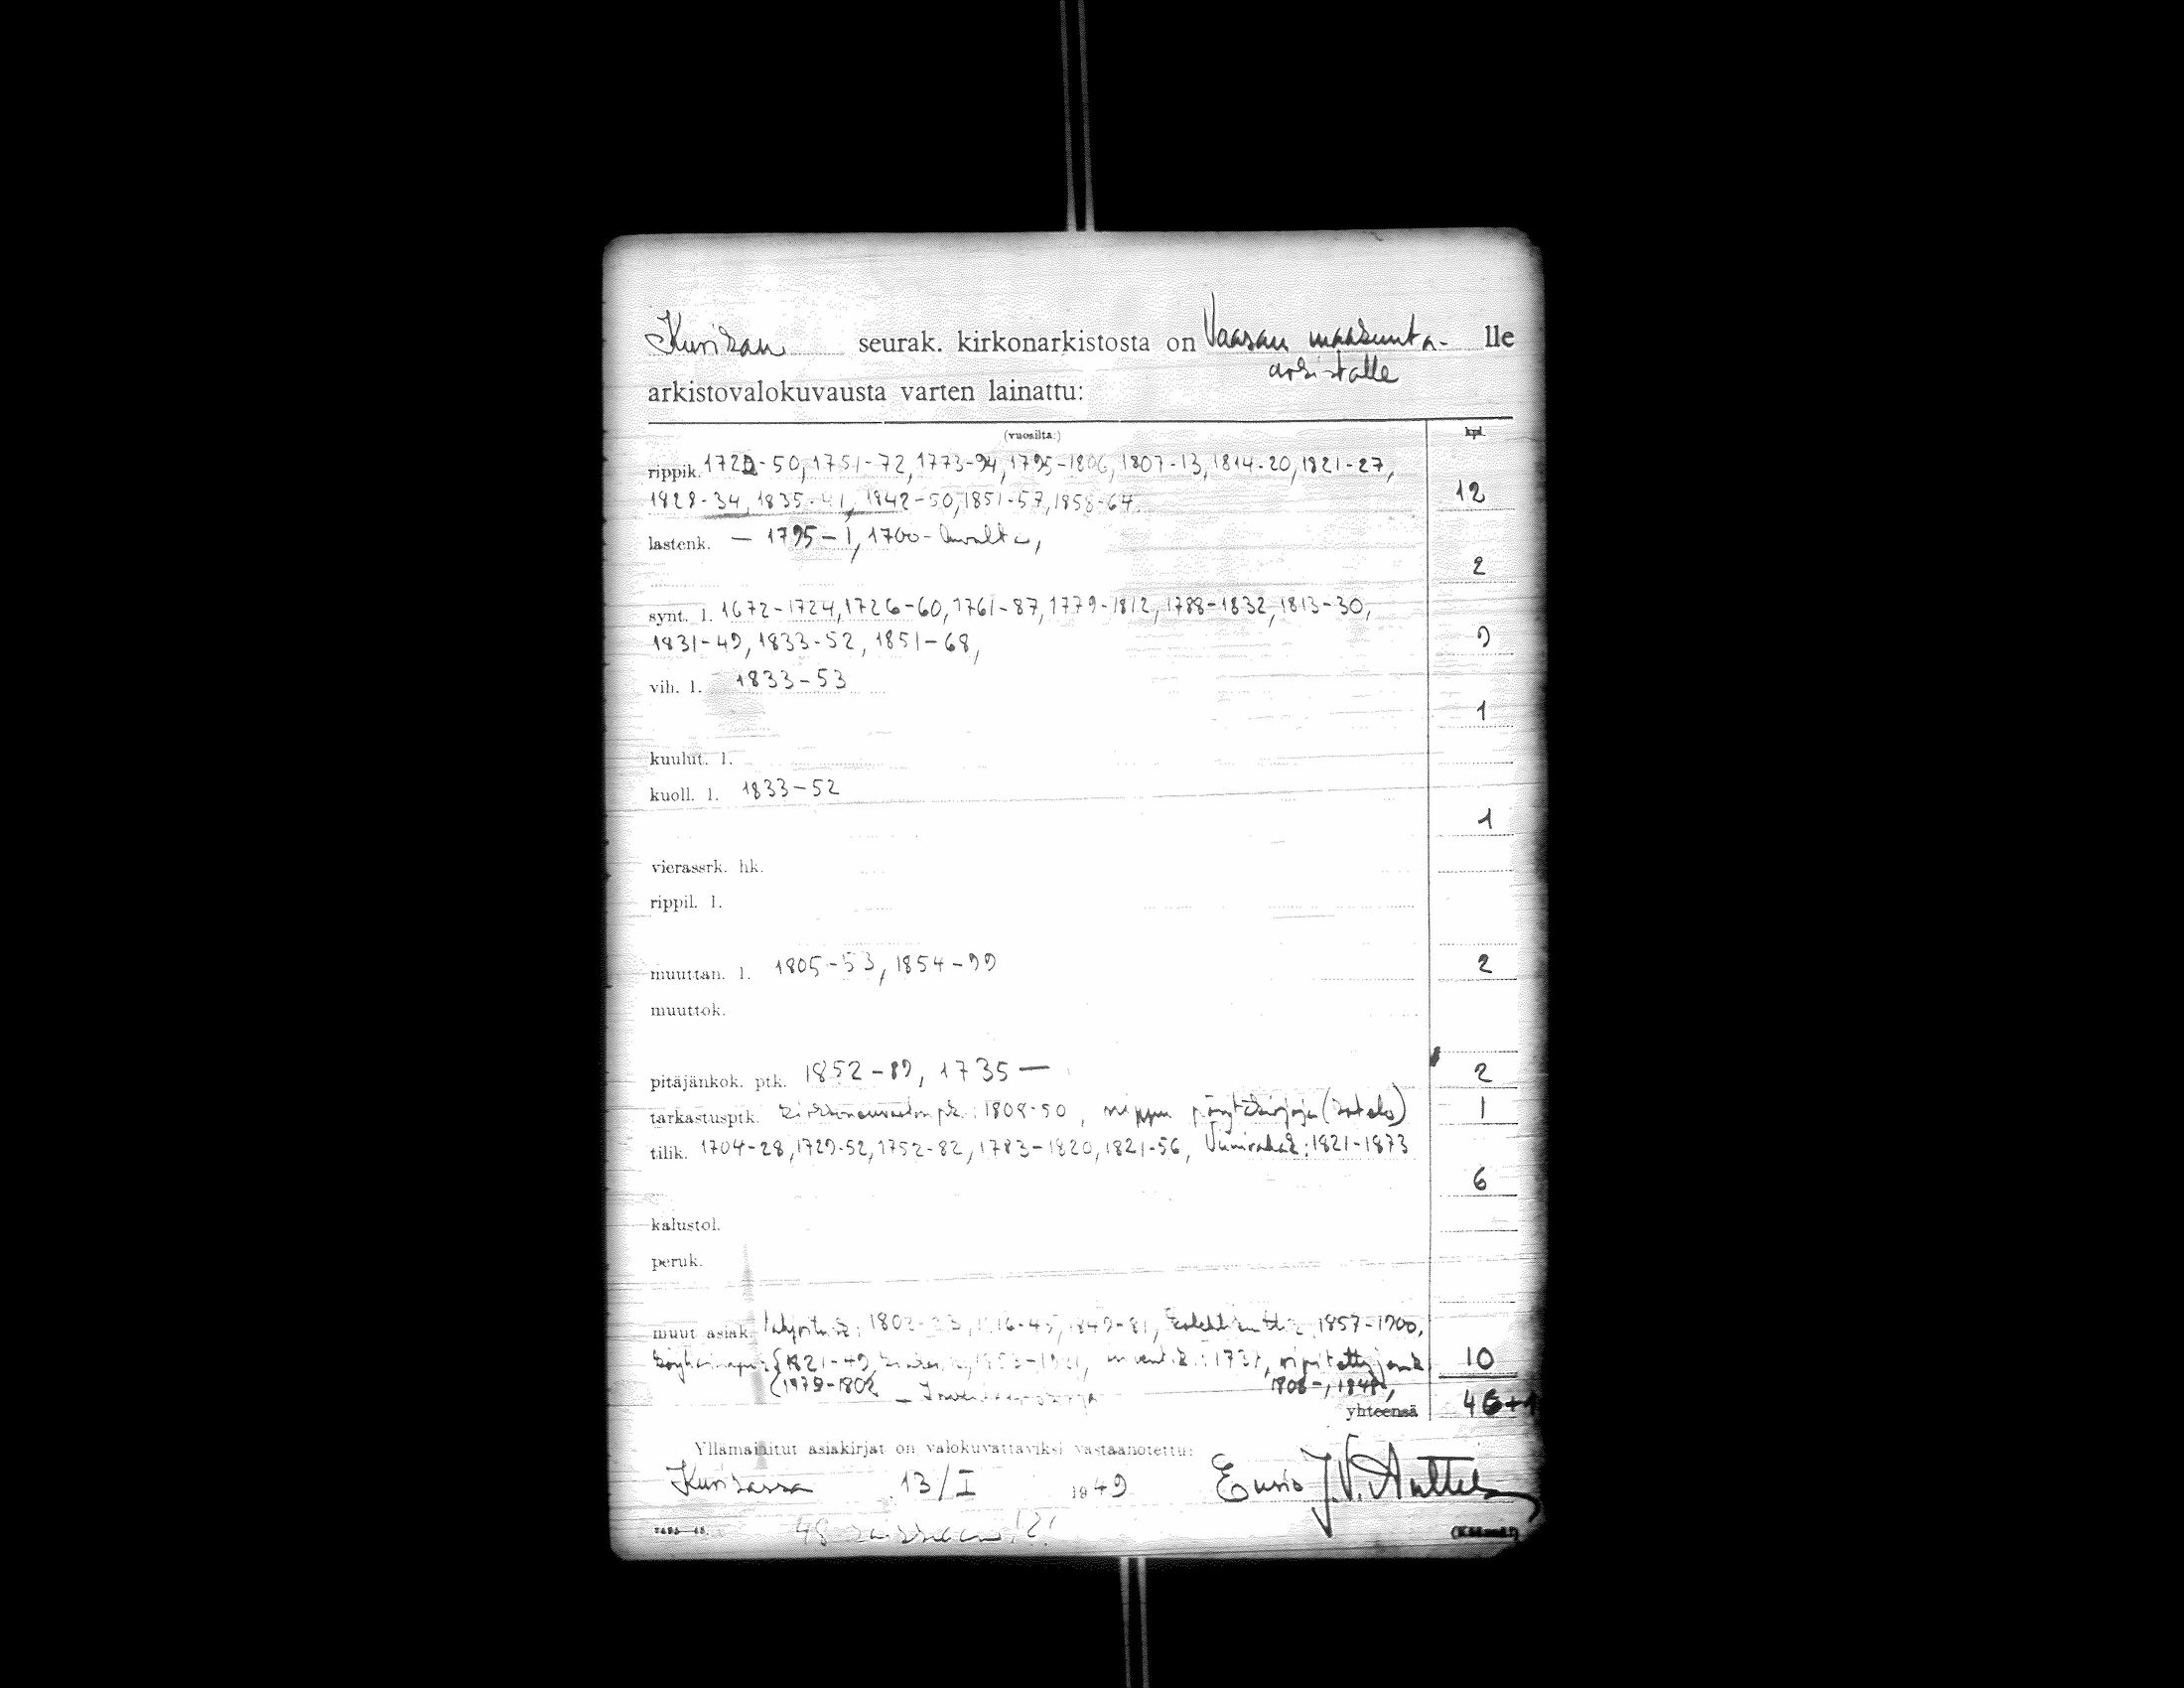 Kurikan seurak. kirkonarkistosta on Vaasan maakunta- lle
arkistolle
arkistovalokuvausta varten lainattu:
(vuosilta:) kpl.
rippik. 1722-50, 1751-72, 1773-94, 1795-1806, 1807-13, 1814-20, 1821-27,
1828-34, 1835-41, 1842-50, 1851-57, 1858-64. 12
lastenk. — 1795-1, 1700-luvulta,
2
synt. l. 1672-1724, 1726-60, 1761-87, 1779-1812, 1788-1832, 1813-30,
1831-49, 1833-52, 1851-68, 9
vih. l. 1833-53
1
kuulut. l.
kuoll. l. 1833-52
1
vierassrk. hk.
rippil. l.
muuttan. l. 1805-53, 1854-99 2
muuttok.
pitäjänkok. ptk. 1852-89, 1735— 2
tarkastusptk. 1808-50, nippu pöytäkirjoja (kotelo) 1
tilik. 1704-28, 1729-52, 1752-82, 1783-1820, 1821-56, Viinirahak: 1821-1873
6
kalustol.
peruk.
muut asiak. 1849-81, 1857-1900,
1821-49, 1737, 10
1808-, 1848,
yhteensä 46+1
Yllämainitut asiakirjat on valokuvattaviksi vastaanotettu:
Kurikassa 13/I 1949 Ensio J.V. Anttila
48